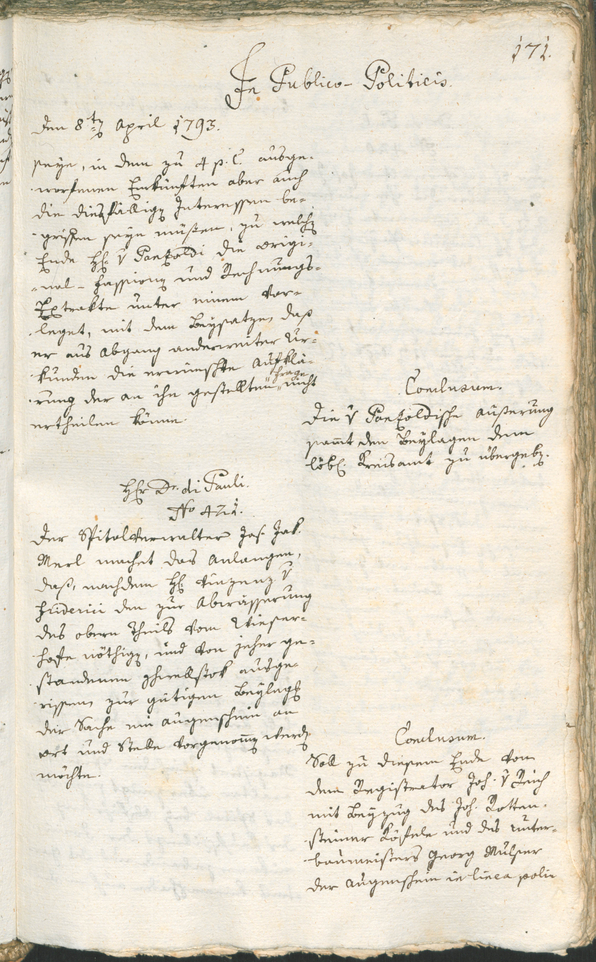 171.
In Publico-Politicis.
Den 8ten April 1793.
seye, in dem zu 4 p. C. ausge-
worfenen Einkünften aber auch
die diesfällige Interessen be-
griffen seyn müßen, zu welchem
Ende H. v Panzoldi die origi-
nal-Fassionen und Rechnungs-
Extrakte unter einem vor-
leget, mit dem Beysatze, daß
er aus Abgang anderweiter Ur-
kunden die erwünschte Aufklä-
rung der an ihn gestellten Frage nicht
ertheilen könne
Conclusum.
Die v Panzoldische Äußerung
samt den Beylagen dem
löbl. Kreisamt zu übergeben.
H. Dr. di Pauli.
No 421.
Der Spitalverwalter Jos. Jak.
Merl machet das Anlangen,
daß, nachdem H. Vinzenz v
den zur Abwässerung
des obern Theils vom
hofe nöthigen, und von jeher ge-
standenen ausge-
rissen, zur gütigen Beylegung
der Sache ein Augenschein an
Ort und Stelle vorgenommen werden
möchte.
Conclusum.
Soll zu diesem Ende von
dem Registrator Joh. v
mit Beyzug des Joh. Rotten-
steiner und des Unter-
baumeisters Georg Mulser
der Augenschein in linea polit